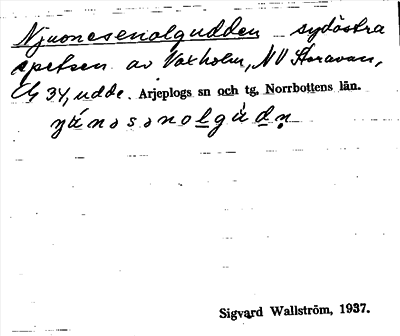 Njuonesenolgudden sydöstra
spetsen av Vaxholm, NV Storavan,
34, udde. Arjeplogs sn och tg, Norrbottens län.
Sigvard Wallström, 1937.